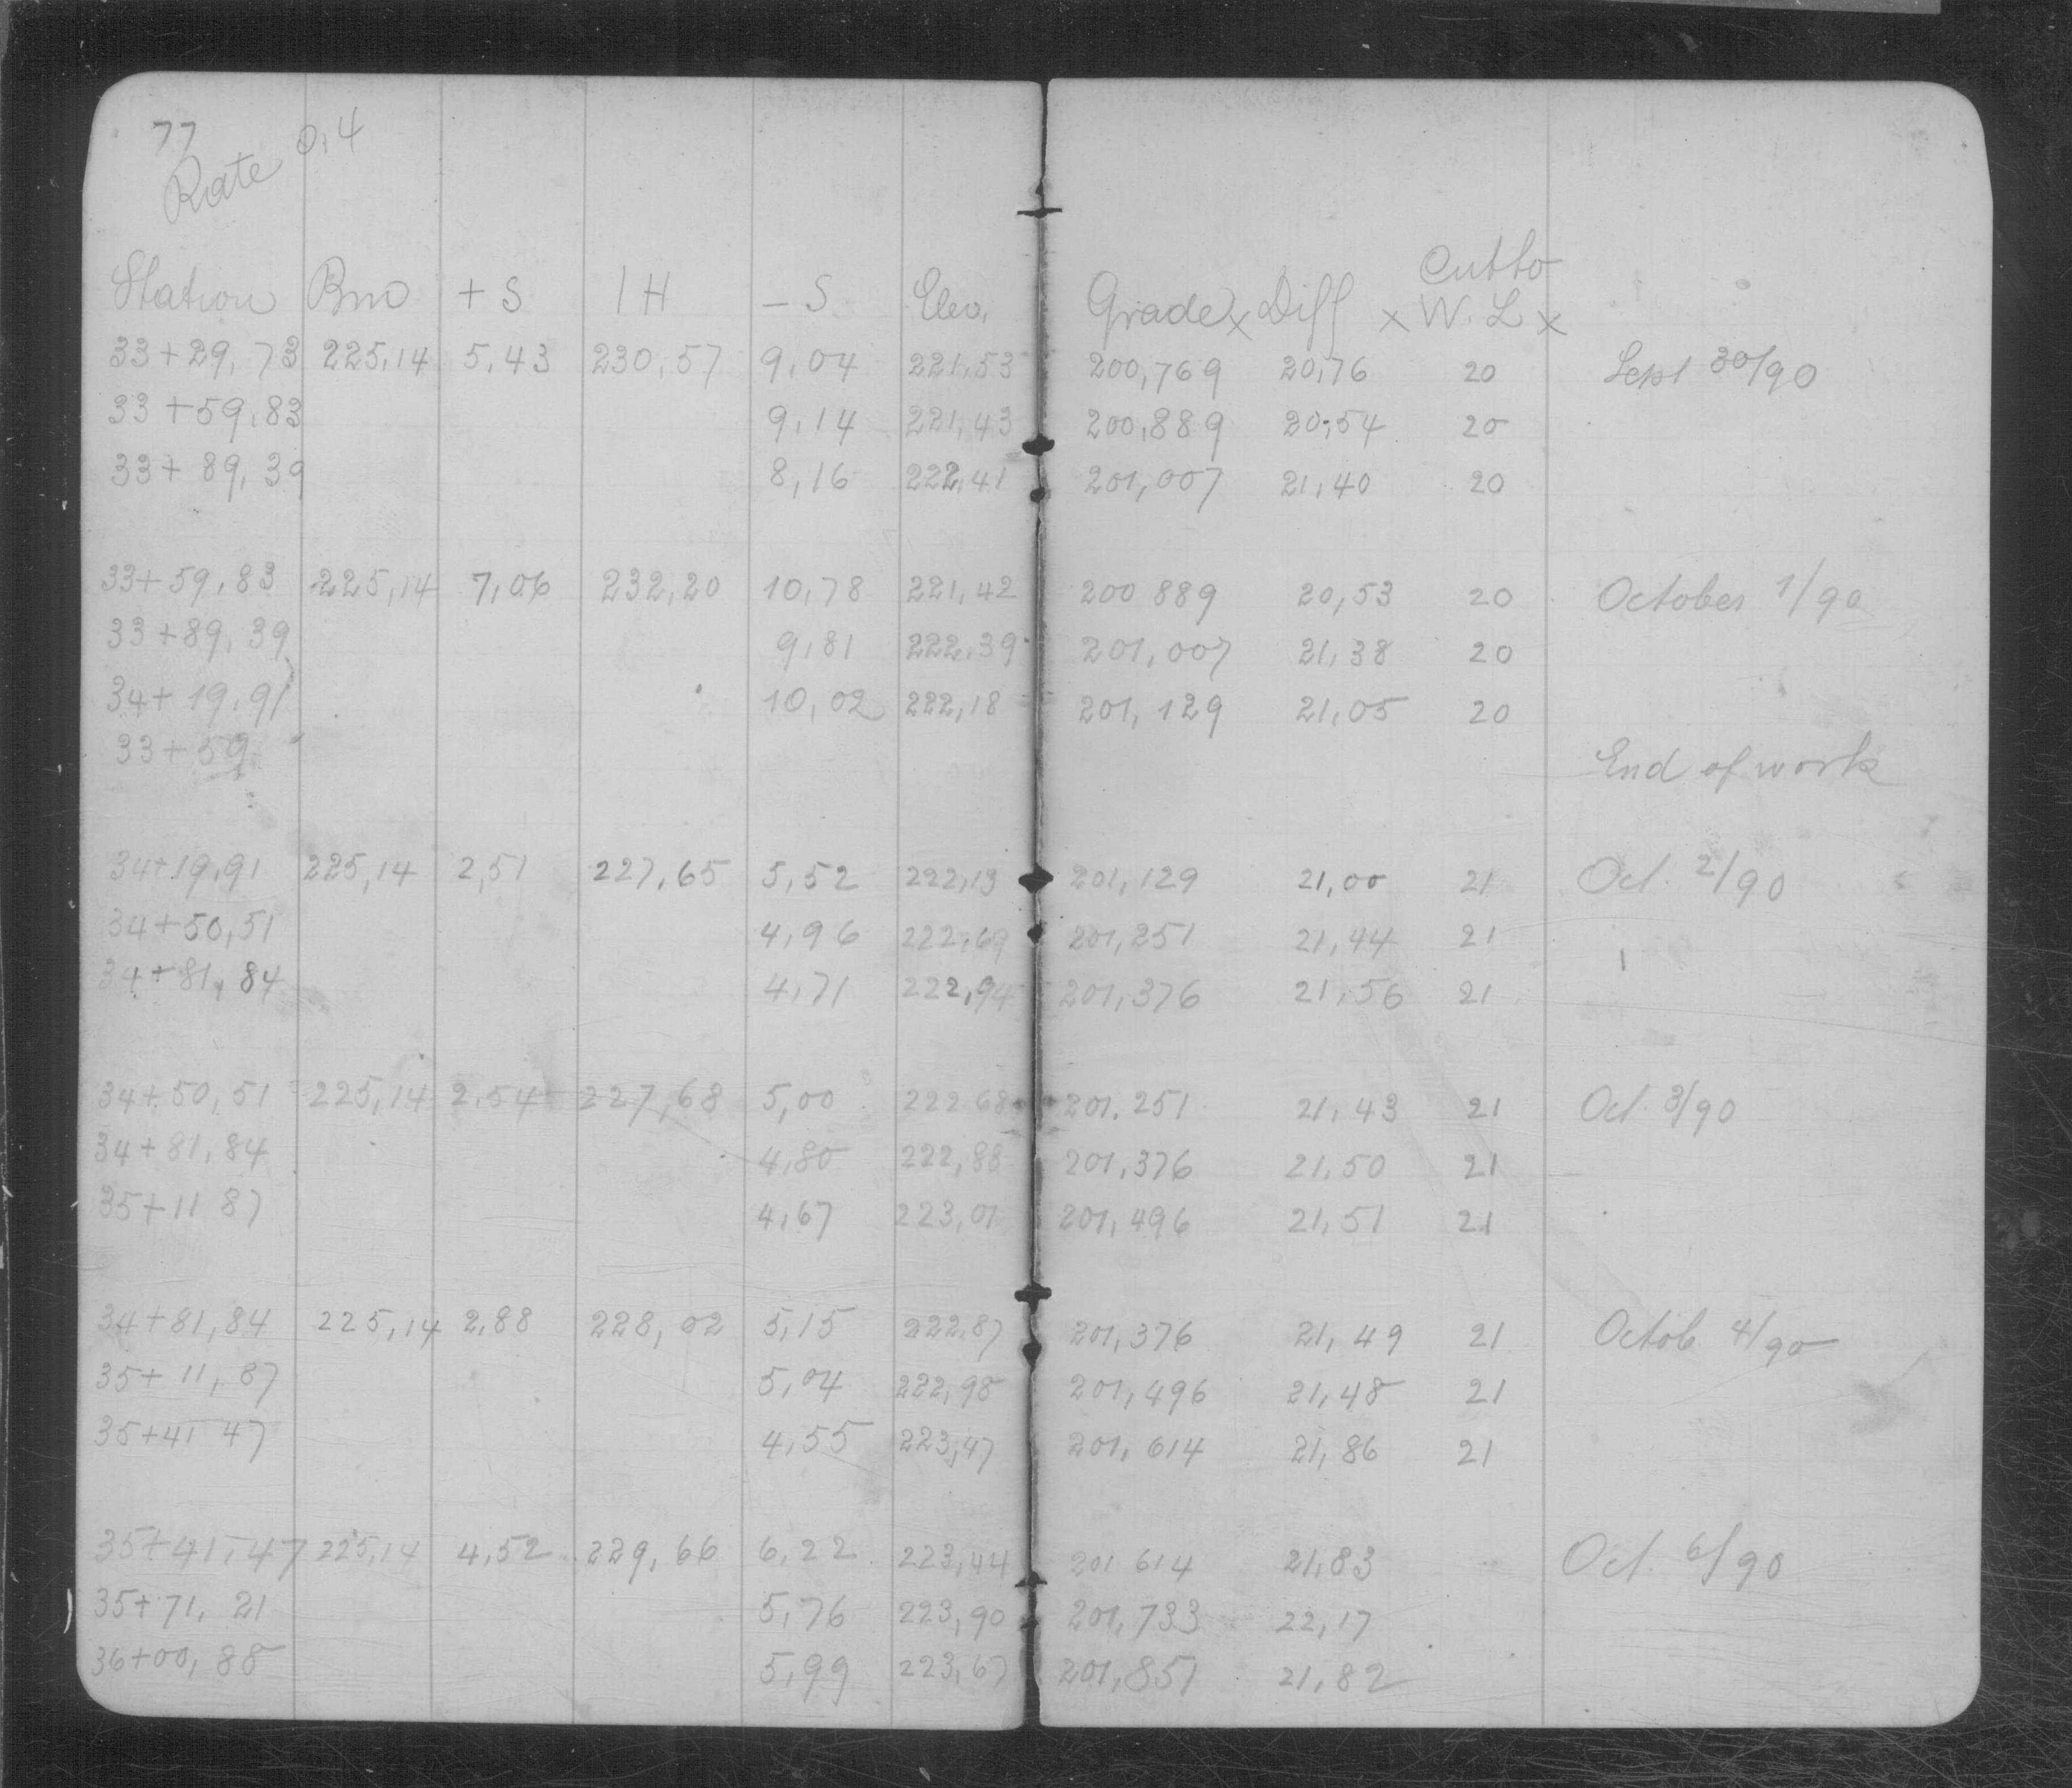 77
Rate 0,4
Cut to
Station Bm + S I H – S Elev. Grade x Diff x W. L x
33+29,73 225,14 5,43 230,57 9,04 221,53 200,769 20,76 20 Sept 30/90
33+59,83 9,14 221,43 200,889 20,54 20
33+89,39 8,16 222,41 201,007 21,40 20
33+59,83 225,14 7,06 232,20 10,78 221,42 200 889 20,53 20 October 1/90
33+89,39 9,81 222,39 201,007 21,38 20
34+19,91 10,02 222,18 201,129 21,05 20
33+59 End of work
34+19,91 225,14 2,51 227,65 5,52 222,13 201,129 21,00 21 Oct. 2/90
34+50,51 4,96 222,69 201,251 21,44 21
34+81,84 4,71 222,94 201,376 21,56 21
34+50,51 225,14 2,54 227,68 5,00 222 68 201,251 21,43 21 Oct. 3/90
34+81,84 4,80 222,88 201,376 21,50 21
35+11 87 4,67 223,01 201,496 21,51 21
34+81,84 225,14 2,88 228,02 5,15 222,87 201,376 21,49 21 Octob. 4/90
35+11,87 5,04 222,98 201,496 21,48 21
35+41 47 4,55 223,47 201,614 21,86 21
35+41,47 225,14 4,52 229,66 6,22 223,44 201 614 21,83 Oct. 6/90
35+71,21 5,76 223,90 201,733 22,17
36+00,88 5,99 223,67 201,851 21,82